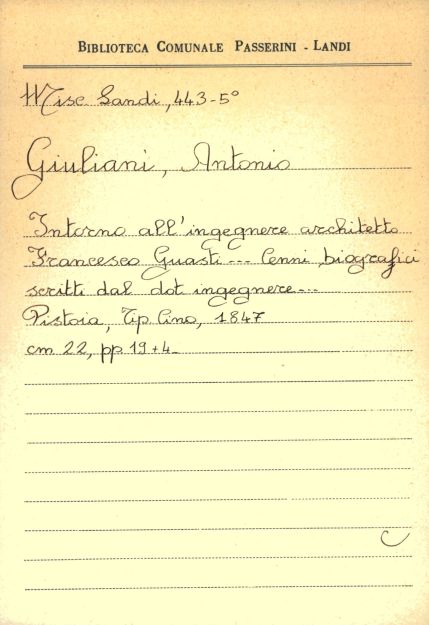 BIBLIOTECA COMUNALE PASSERINI - LANDI
Misc. Landi, 443-5°
Giuliani, Antonio
Intorno all'ingegnere architetto
Francesco Guasti --- Cenni biografici
scritti dal dot ingegnere---
Pistoia, Tip. Cino, 1847
cm 22, pp 19+4_
C